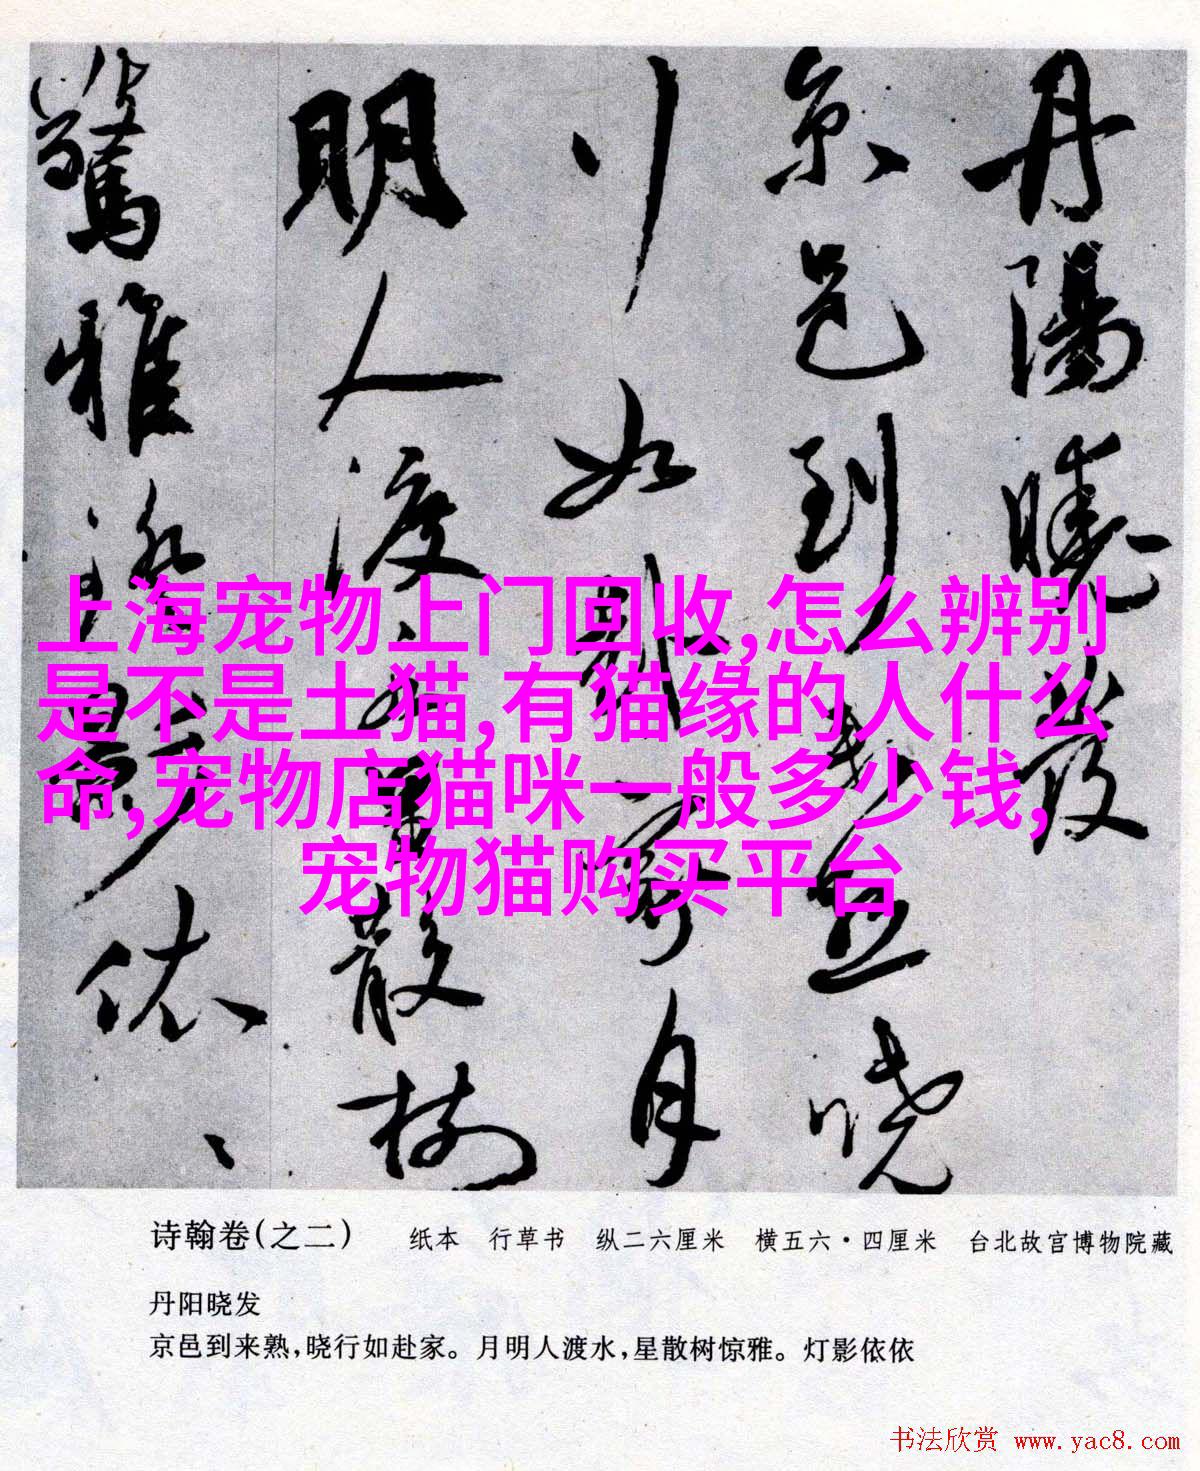 丹陽曉發
京邑到来熟曉
行如赴家月
明人渡水星散樹
驚雅燈影依、
上海宠物上门回收,怎么辨别
是不是土猫,有猫缘的人什么
命,宠物店猫咪一般多少钱,
宠物猫购买平台
诗翰卷(之二) 纸本 行草书 纵二六厘米 横五六·四厘米 台北故宫博物院藏
丹阳晓发
京邑到来熟,晓行如赴家。月明人渡水,星散树惊雅。灯影依依
书法欣赏 www.yac8.com